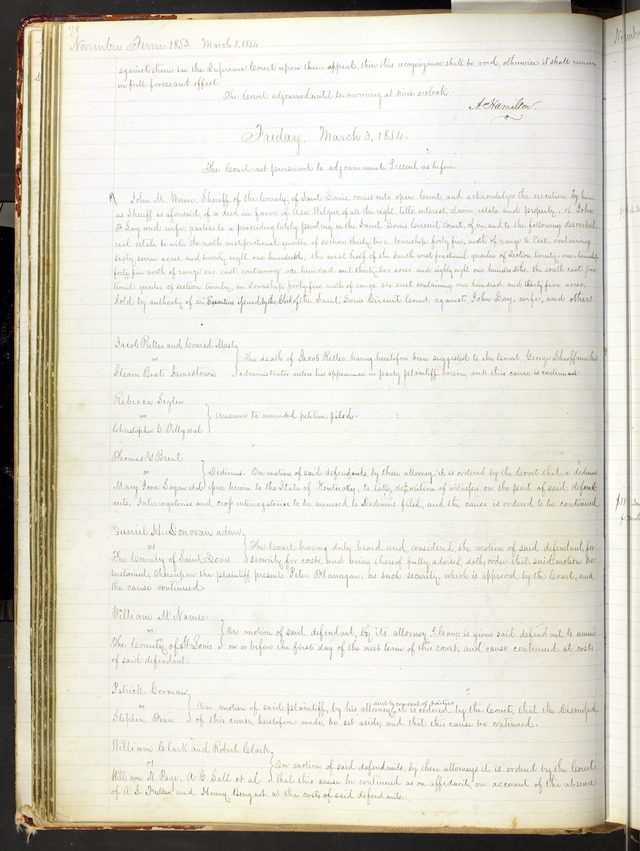 98
November Term 1853. March 3, 1854
against them in the Supreme Court upon their appeal then this recognizance shall be void, otherwise it shall remain
in full force and effect
The Court adjourned until tomorrow at nine o'clock
A. Hamilton.
Friday, March 3, 1854.
The Court met pursuant to adjournment. Present as before.
John M. Wimer, Sheriff of the County of Saint Louis, comes into open Court, and acknowledges the execution by him
as Sheriff as aforesaid, of a deed in favor of Asa Wilgus, of all the right, title, interest, claim, estate and property, of John
Lay and wife, parties to a proceeding lately pending in the Saint Louis Circuit Court, of, in, and to the following described
real estate to wit: the north west fractional quarter of section thirty two, township forty five, north of range six east, containing
sixty seven acres and twenty eight one hundredths, the west half of the south west fractional quarter of section twenty- one, township
forty five north of range six east, containing one hundred and thirty two acres, and eighty eight one hundredths, the south east frac
tional quarter of section twenty, in township forty five, north of range six east containing one hundred and thirty five acres,
sold by authority of an Execution issued by the Clerk of the Saint Louis Circuit Court against John Lay, wife, and others
Jacob Ritter and Conrad
vs
Steam Boat Jamestown
The death of Jacob Ritter having heretofore been suggested to the Court, George
administrator enters his appearance as party plaintiff herein, and this cause is continued
Rebecca Sigler
vs
Christopher C.
Answer to amended petition filed.
Thomas Y Brent
vs
Mary Jane Logan et al
Dedimus. On motion of said defendants, by their attorney, it is ordered by the Court that a dedimus
issue herein to the State of Kentucky, to take deposition of witnesses on the part of said defend-
ants. Interrogatories and cross interrogatories to be annexed to Dedimus filed, and the cause is ordered to be continued
Daniel H. Donovan admr
vs
The County of Saint Louis
The Court having duly heard and considered the motion of said defendant for
security for costs, and being thereof fully advised, doth order that said motion be
sustained, thereupon the plaintiff presents Peter Flanagan, as such security, which is approved by the Court, and
the cause continued.
William McNamee
vs
The County of St Louis
On motion of said defendant, by its attorney, leave is given said defendant to amend
on or before the first day of the next term of this court, and cause continued at costs
of said defendant.
Patrick Gorman
vs
Stephen
On motion of said plaintiff, by his attorney, and by consent of parties it is ordered by the Court, that the dismissal
of this cause heretofore made, be set aside, and that this cause be continued.
William Clark and Robert Clark,
vs
William M Page, A G Gell et al
On motion of said defendants, by their attorneys it is ordered by the Court
that this cause be continued as on affidavit, on account of the absence
of A. S. Fuller and Henry at the costs of said defendants.